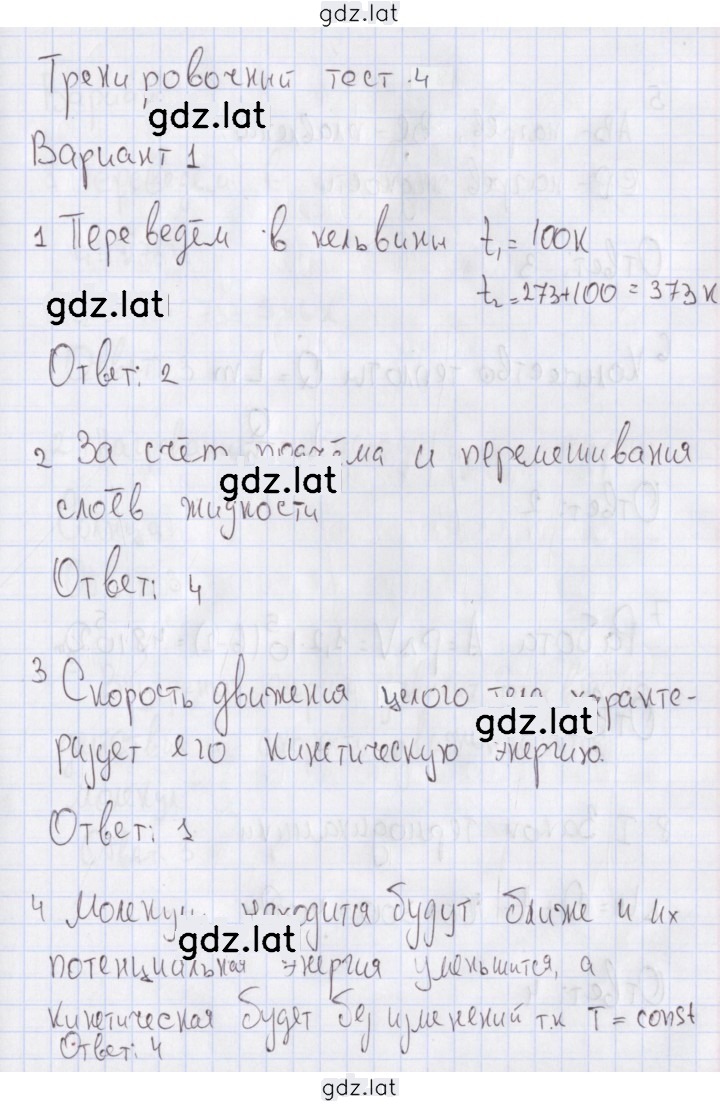 gdz.lat
Тренировочный тест 4
gdz.lat
Вариант 1
1 Переведём в кельвины t₁ = 100К
t₂ = 273+100 = 373 К
gdz.lat
Ответ: 2
2 За счёт и перемешивания
gdz.lat
слоёв жидкости
Ответ: 4
3 Скорость движения целого тела характе-
gdz.lat
ризует его кинетическую энергию.
Ответ: 1
4 находится будут ближе и их
gdz.lat
потенциальная энергия уменьшится, а
кинетическая будет без изменений т.к T = const
Ответ: 4
gdz.lat